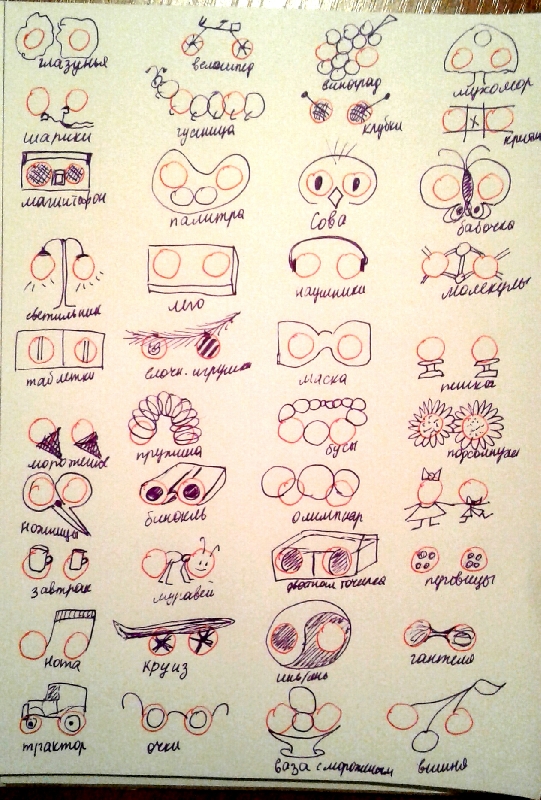 глазунья
велосипед
виноград
мухомор
шарики
гусница
клубки
магнитофон
палитра
Сова
бабочка
светильник
лего
наушники
молекулы
таблетки
елочн. игрушки
маска
пешки
мороженое
пружина
бусы
подсолнухи
Ножницы
бинокль
олимпиар
завтрак
муравей
двойная точилка
пуговицы
нота
круиз
инь/янь
гантеля
трактор
очки
ваза с мороженым
вишня